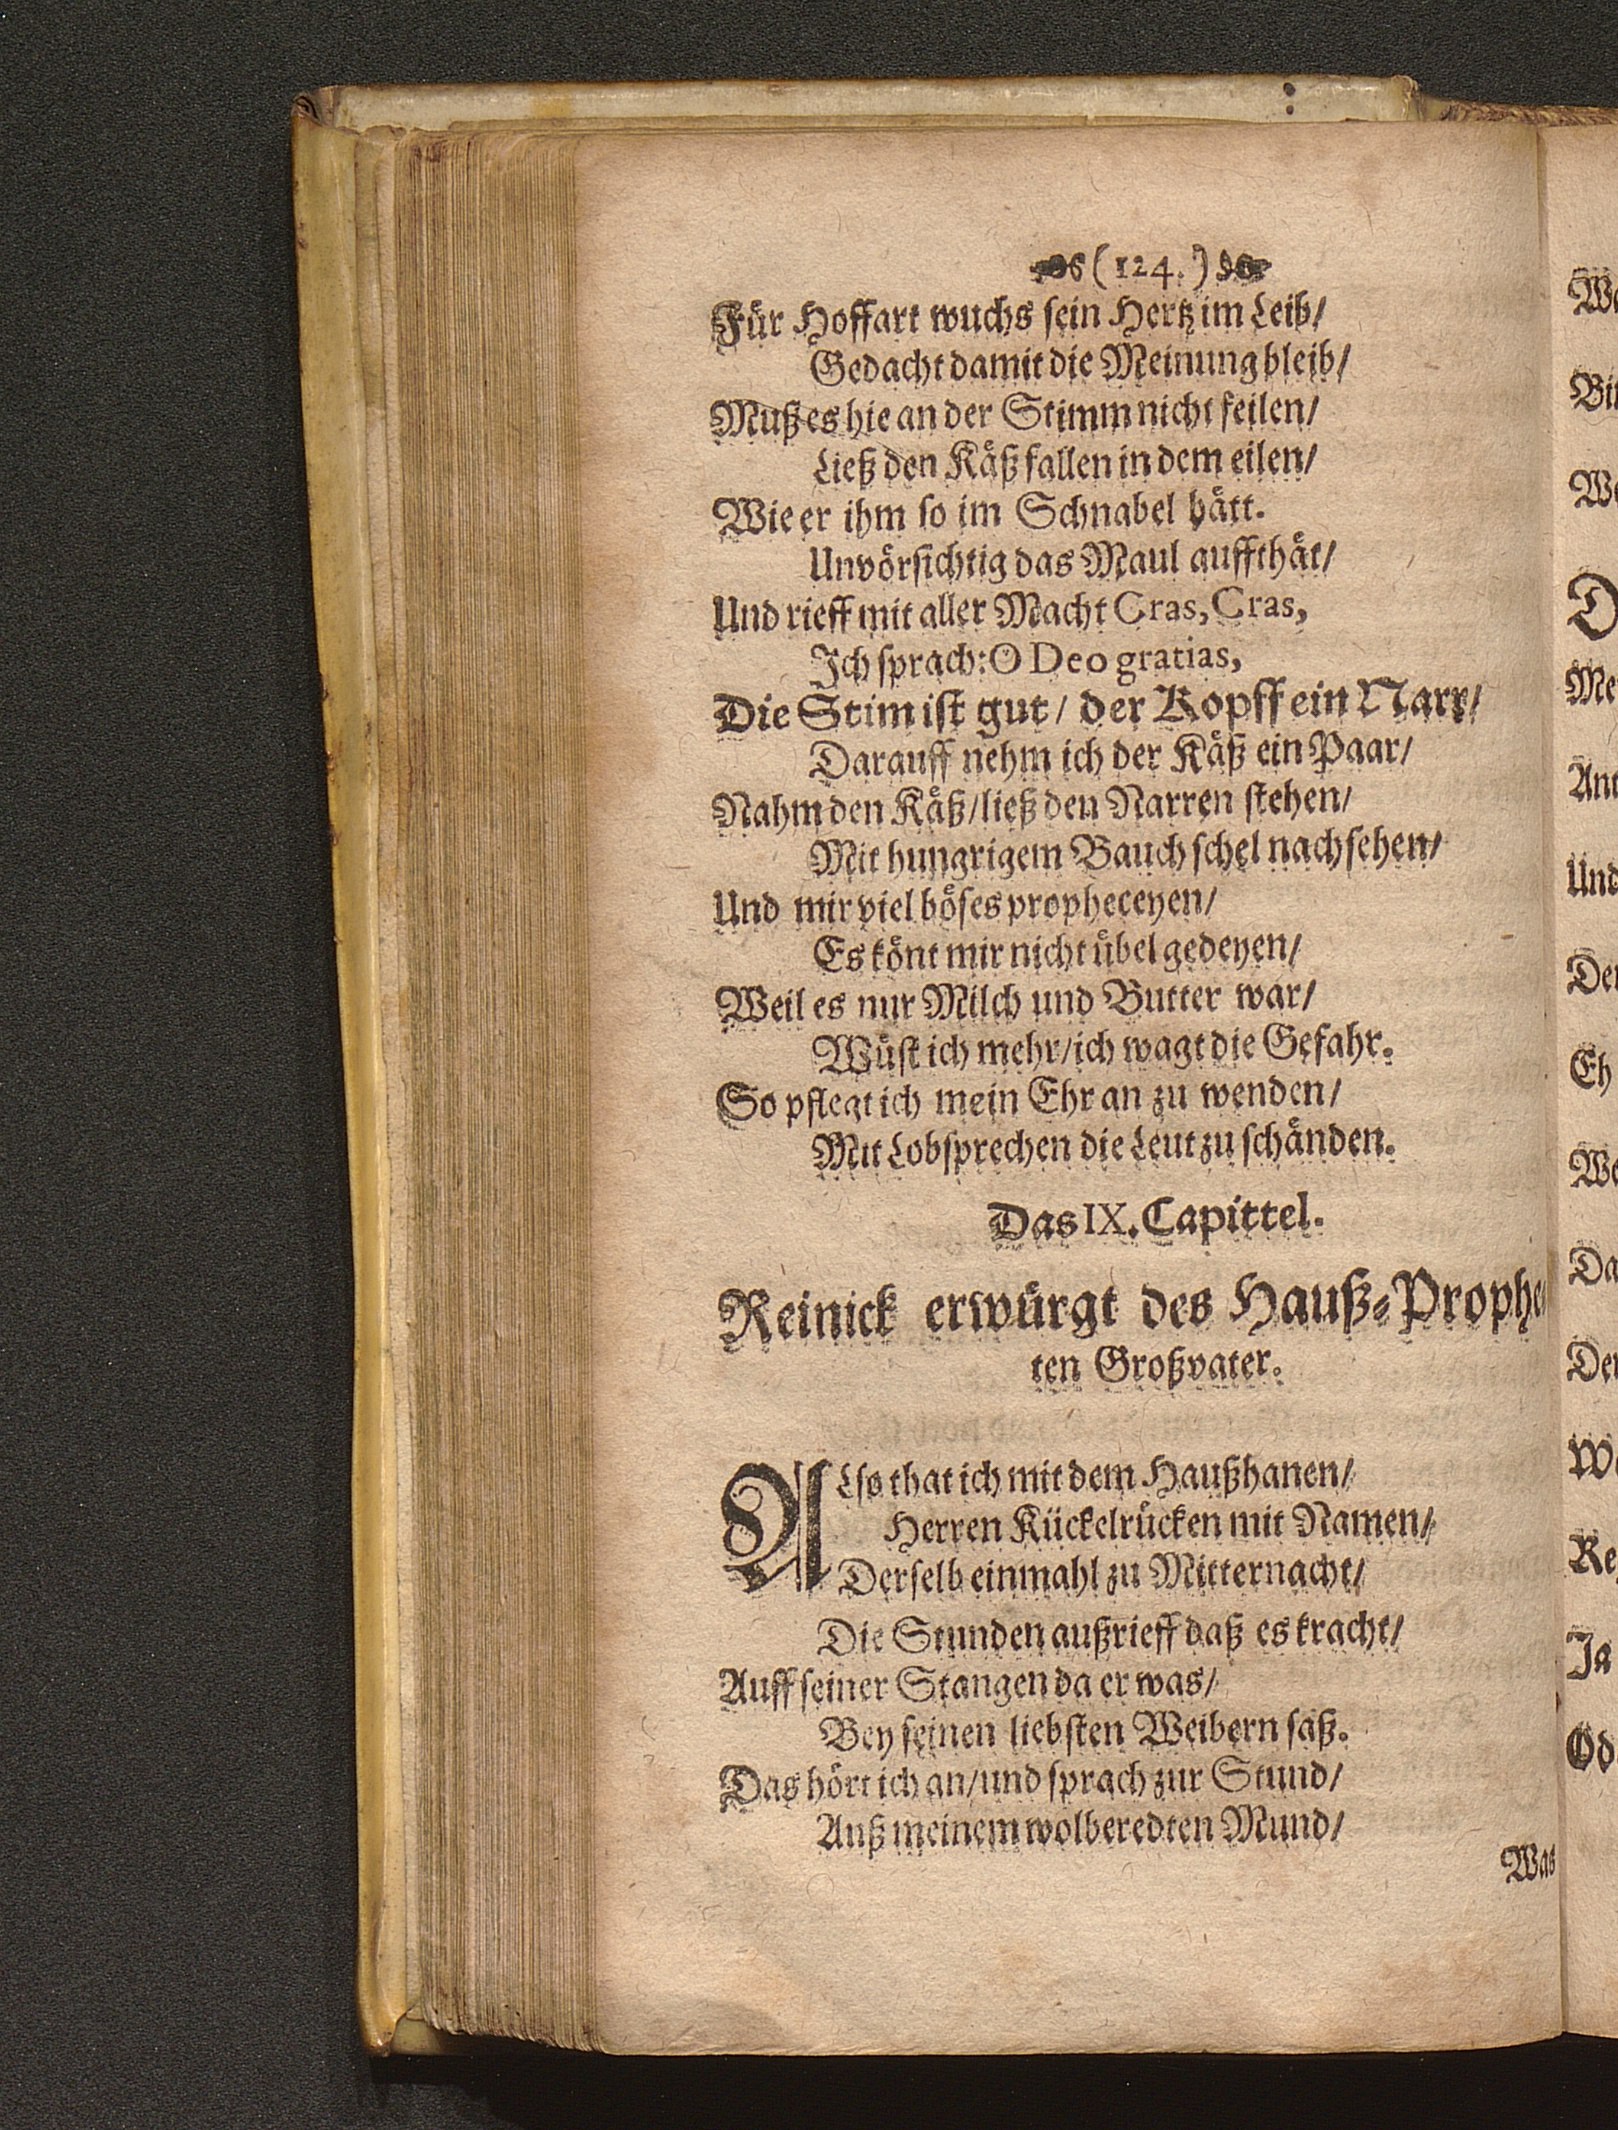 (124.)
Für Hoffart wuchs sein Hertz im Leib/
Gedacht damit die Meinung bleib/
Muß es hie an der Stimm nicht feilen/
Ließ den Käß fallen in dem eilen/
Wie er ihm so im Schnabel hätt.
Unvörsichtig das Maul auffthät/
Und rieff mit aller Macht Cras, Cras,
Ich sprach: O Deo gratias,
Die Stim ist gut/ der Kopff ein Narr/
Darauff nehm ich der Käß ein Paar/
Nahm den Käß/ ließ den Narren stehen/
Mit hungrigem Bauch schel nachsehen/
Und mir viel böses propheceyen/
Es könt mir nicht übel gedeyen/
Weil es nur Milch und Butter war/
Wüst ich mehr/ ich wagt die Gefahr.
So pflegt ich mein Ehr an zu wenden/
Mit Lobsprechen die Leut zu schänden.
Das IX. Capittel.
Reinick erwürgt des Hauß-Prophe-
ten Großvater.
ALso that ich mit dem Haußhanen/
Herren Kückelrücken mit Namen/
Derselb einmahl zu Mitternacht/
Die Stunden außrieff daß es kracht/
Auff seiner Stangen da er was/
Bey seinen liebsten Weibern saß.
Das hört ich an/ und sprach zur Stund/
Auß meinem wolberedten Mund/
Was